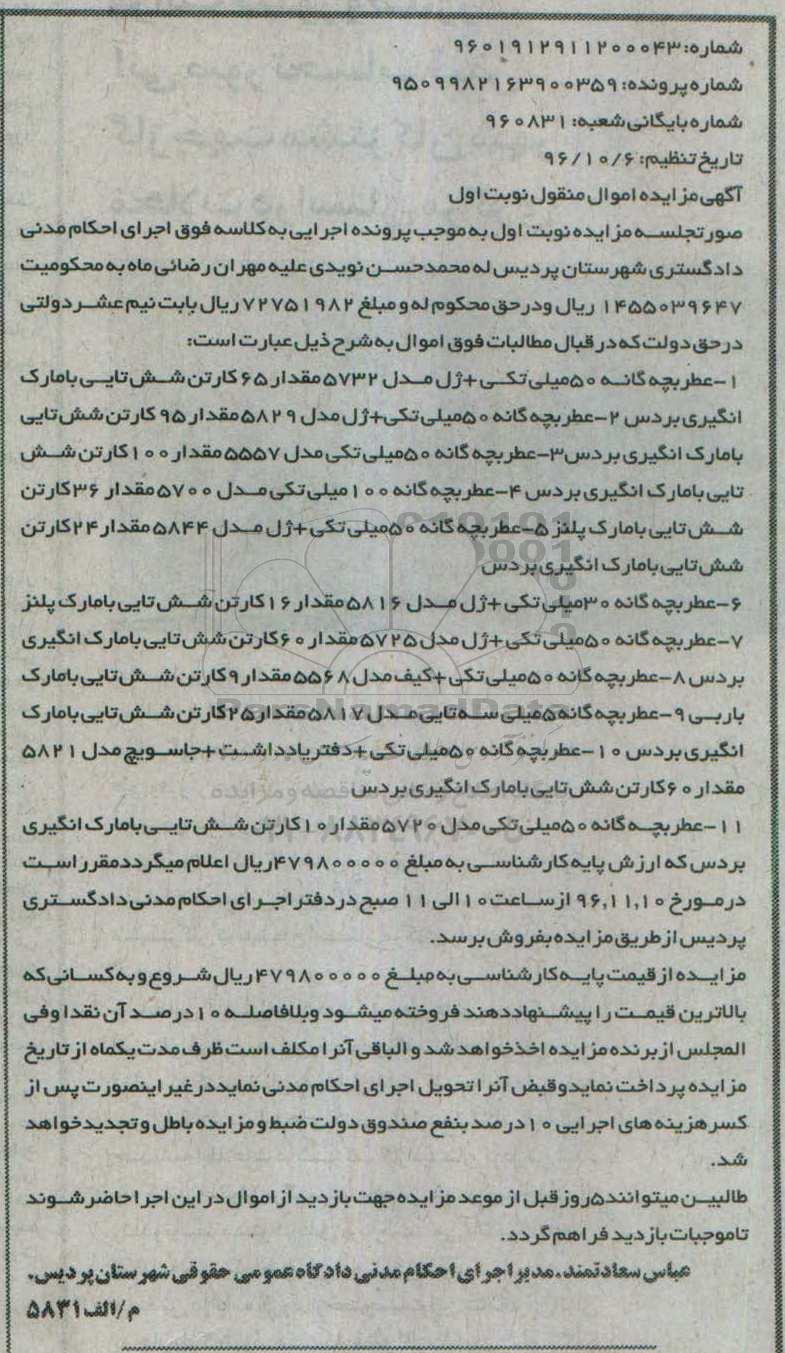 شماره: ۹۶۰۱۹۱۲۹۱۱۲۰۰۰۴۳
شماره پرونده: ۹۵۰۹۹۸۲۱۶۳۹۰۰۳۵۹
شماره بایگانی شعبه: ۹۶۰۸۳۱
تاریخ تنظیم: ۹۶/۱۰/۶
آگهی مزایده اموال منقول نوبت اول
صورتجلسه مزایده نوبت اول به موجب پرونده اجرایی به کلاسه فوق اجرای احکام مدنی
دادگستری شهرستان پردیس له محمدحسن نویدی علیه مهران رضائی ماه به محکومیت
۱۴۵۵۰۳۹۶۴۷ ریال ودرحق محکوم له و مبلغ ۷۲۷۵۱۹۸۲ ریال بابت نیم عشر دولتی
درحق دولت که در قبال مطالبات فوق اموال به شرح ذیل عبارت است:
۱-عطر بچه گانه ۵۰میلی تکی+ژل مدل ۵۷۳۲مقدار ۶۵کارتن شش تایی بامارک
انگیری بردس ۲-عطر بچه گانه ۵۰میلی تکی+ژل مدل ۵۸۲۹مقدار ۹۵کارتن شش تایی
بامارک انگیری بردس۳-عطر بچه گانه ۵۰میلی تکی مدل ۵۵۵۷مقدار ۱۰۰کارتن شش
تایی بامارک انگیری بردس ۴-عطر بچه گانه ۱۰۰میلی تکی مدل ۵۷۰۰مقدار ۳۶کارتن
شش تایی بامارک پلنز ۵-عطر بچه گانه ۵۰میلی تکی+ژل مدل ۵۸۴۴مقدار ۲۴کارتن
شش تایی بامارک انگیری بردس
۶-عطر بچه گانه ۳۰میلی تکی+ژل مدل ۵۸۱۶مقدار ۱۶کارتن شش تایی بامارک پلنز
۷-عطر بچه گانه ۵۰میلی تکی+ژل مدل ۵۷۲۵مقدار ۶۰کارتن شش تایی بامارک انگیری
بردس ۸-عطر بچه گانه ۵۰میلی تکی+کیف مدل ۵۵۶۸مقدار ۹کارتن شش تایی بامارک
باربی ۹-عطر بچه گانه۵میلی سه تایی مدل ۵۸۱۷مقدار۲۵کارتن شش تایی بامارک
انگیری بردس ۱۰-عطر بچه گانه ۵۰میلی تکی+دفتر یادداشت+جاسویچ مدل ۵۸۲۱
مقدار ۶۰کارتن شش تایی بامارک انگیری بردس
۱۱-عطر بچه گانه ۵۰میلی تکی مدل ۵۷۲۰مقدار ۱۰کارتن شش تایی بامارک انگیری
بردس که ارزش پایه کارشناسی به مبلغ ۴۷۹۸۰۰۰۰۰ریال اعلام میگرددمقرر است
درمورخ ۹۶,۱۱,۱۰ ازساعت ۱۰الی ۱۱ صبح در دفتر اجرای احکام مدنی دادگستری
پردیس از طریق مزایده بفروش برسد.
مزایده از قیمت پایه کارشناسی به مبلغ ۴۷۹۸۰۰۰۰۰ریال شروع و به کسانی که
بالاترین قیمت را پیشنهاد دهند فروخته میشود وبلافاصله ۱۰درصد آن نقدا وفی
المجلس از برنده مزایده اخذخواهد شد و الباقی آنرا مکلف است ظرف مدت یکماه از تاریخ
مزایده پرداخت نماید وقبض آنرا تحویل اجرای احکام مدنی نماید در غیر اینصورت پس از
کسر هزینه های اجرایی ۱۰درصد بنفع صندوق دولت ضبط و مزایده باطل و تجدید خواهد
شد.
طالبین میتوانند۵روز قبل از موعد مزایده جهت بازدید از اموال در این اجرا حاضر شوند
تاموجبات بازدید فراهم گردد.
عباس سعادتمند، مدیر اجرای احکام مدنی دادگاه عمومی حقوقی شهرستان پردیس.
م/الف ۵۸۳۱